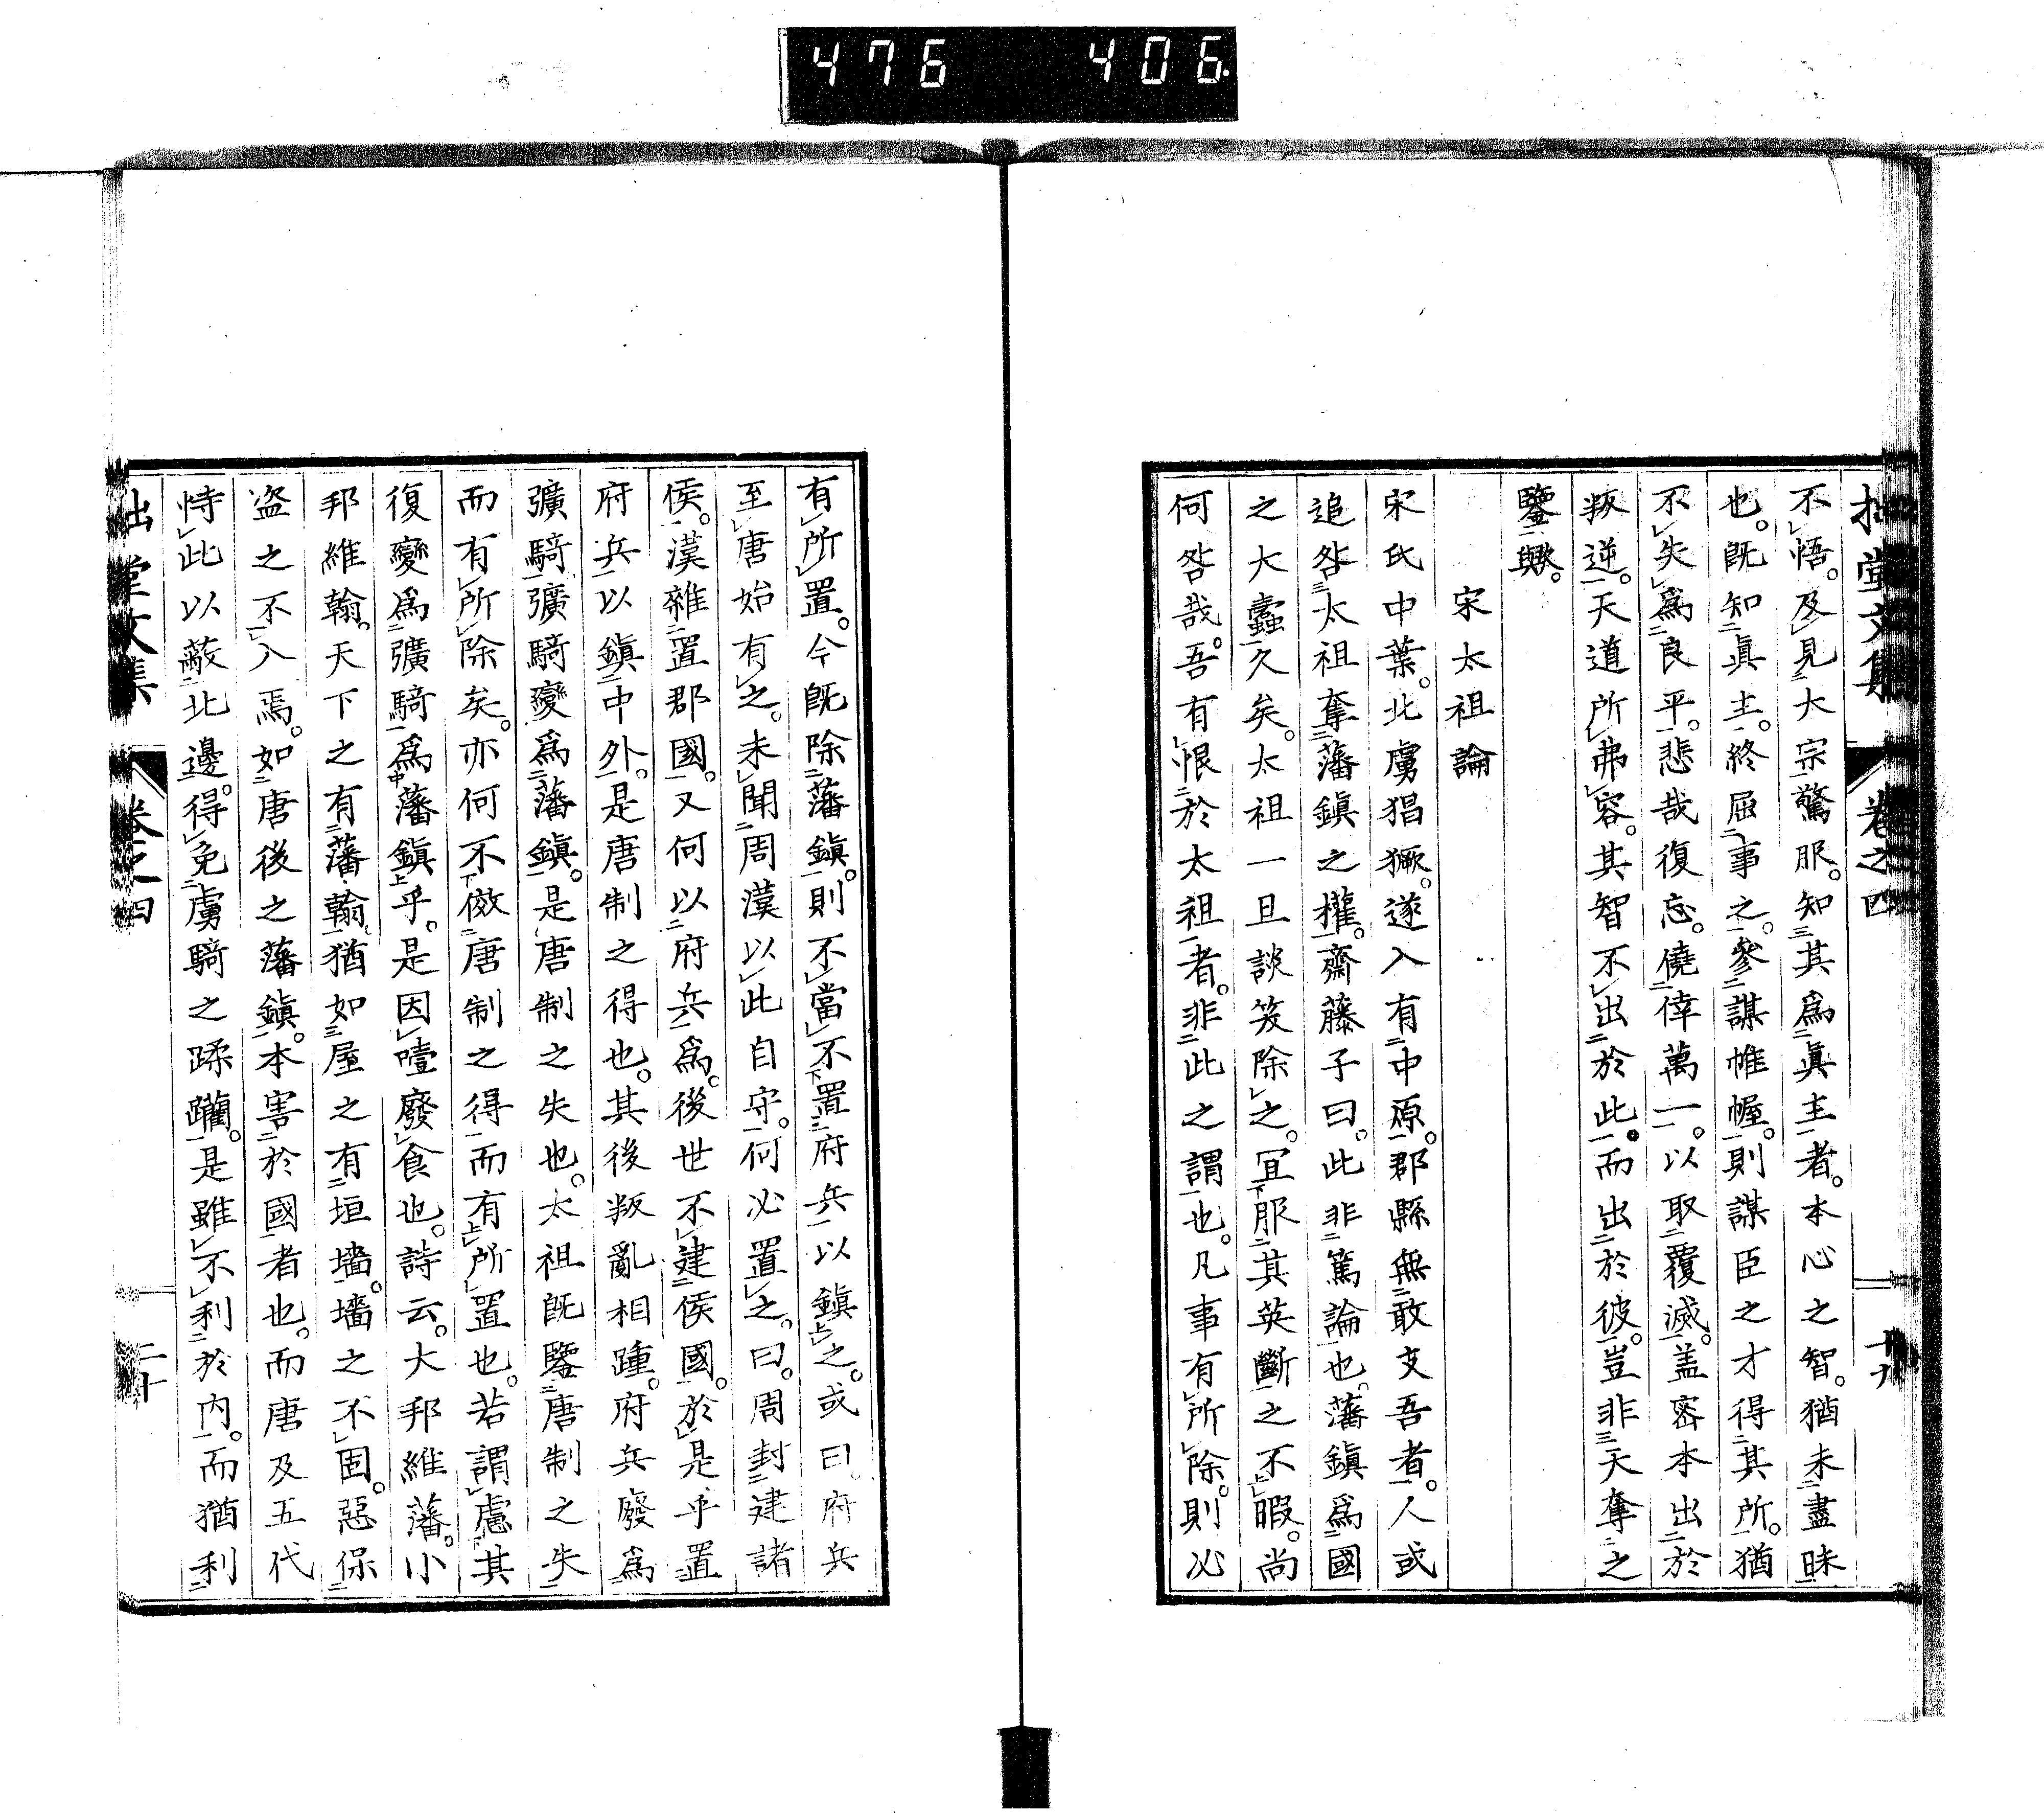 476 406
拙堂文集 卷之四 十九
不悟。及見大宗驚服。知其爲眞主者。本心之智。猶未盡昧
也。既知眞主。終屈事之。參謀帷幄。則謀臣之才得其所。猶
不失爲良平。悲哉復忘。僥倖萬一。以取覆滅。盖密本出於
叛逆。天道所弗容。其智不出於此。而出於彼。豈非天奪之
鑒歟。
宋太祖論
宋氏中葉。北虜猖獗。遂入有中原。郡縣無敢支吾者。人或
追咎太祖奪藩鎭之權。齋藤子曰。此非篤論也。藩鎭爲國
之大蠹久矣。太祖一旦談笑除之。冝服其英斷之不暇。尚
何咎哉。吾有恨於太祖者。非此之謂也。凡事有所除。則必
有所置。今既除藩鎭。則不當不置府兵以鎭之。或曰。府兵
至唐始有之。未聞周漢以此自守。何必置之。曰。周封建諸
侯。漢雜置郡國。又何以府兵爲。後世不建侯國。於是乎置
府兵以鎭中外。是唐制之得也。其後叛亂相踵。府兵廢爲
彍騎。彍騎變爲藩鎭。是唐制之失也。太祖既鑒唐制之失
而有所除矣。亦何不傚唐制之得而有所置也。若謂慮其
復變爲彍騎爲藩鎭乎。是因噎廢食也。詩云。大邦維藩。小
邦維翰。天下之有藩翰。猶如屋之有垣墻。墻之不固。惡保
盗之不入焉。如唐後之藩鎭。本害於國者也。而唐及五代
恃此以蔽北邊。得免虜騎之蹂躪。是雖不利於内。而猶利
拙堂文集 卷之四 二十